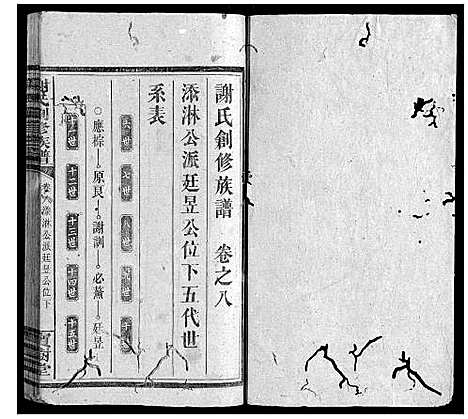 謝氏創修族譜 卷之八
添淋公派廷昱公位下五代世
系表
六世 七世 九世 十世
○應棕—○原良—○謝訓—○必薰—○廷昱
十一世 十二世 十三世 十四世 十五世
謝氏創修族譜 卷八 添淋公派廷昱公位下 寶樹堂